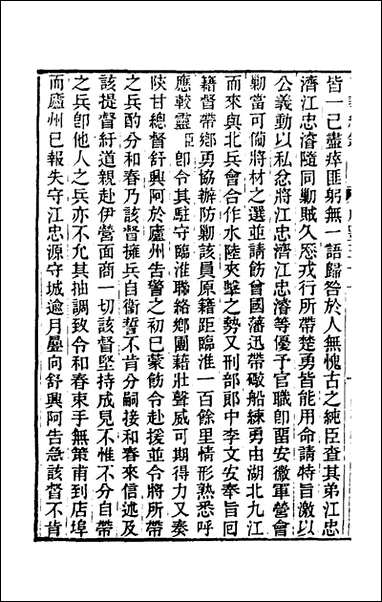 皆一己盡瘁匪躬無一語歸咎於人無愧古之純臣查其弟江忠
濟江忠濬隨同勦賊久厯戎行所帶楚勇皆能用命請特旨激以
公義動以私忿將江忠濟江忠濬等優予官職卽留安徽軍營會
勦當可備將材之選並請飭曾國藩迅帶礮船練勇由湖北九江
而來與北兵會合作水陸夾擊之勢又刑部郞中李文安奉旨回
籍督帶鄉勇協辦防勦該員原籍距臨淮一百餘里情形熟悉呼
應較靈臣卽令其駐守臨淮聯絡鄉團藉壯聲威可期得力又奏
陜甘總督舒興阿於廬州告警之初已蒙飭令赴援並令將所帶
之兵酌分和春乃該督擁兵自衞誓不肯分嗣接和春來信述及
該提督紆道親赴伊營面商一切該督堅持成見不惟不分自帶
之兵卽他人之兵亦不允其抽調致令和春束手無策甫到店埠
而廬州已報失守江忠源守城逾月屢向舒興阿告急該督不肯